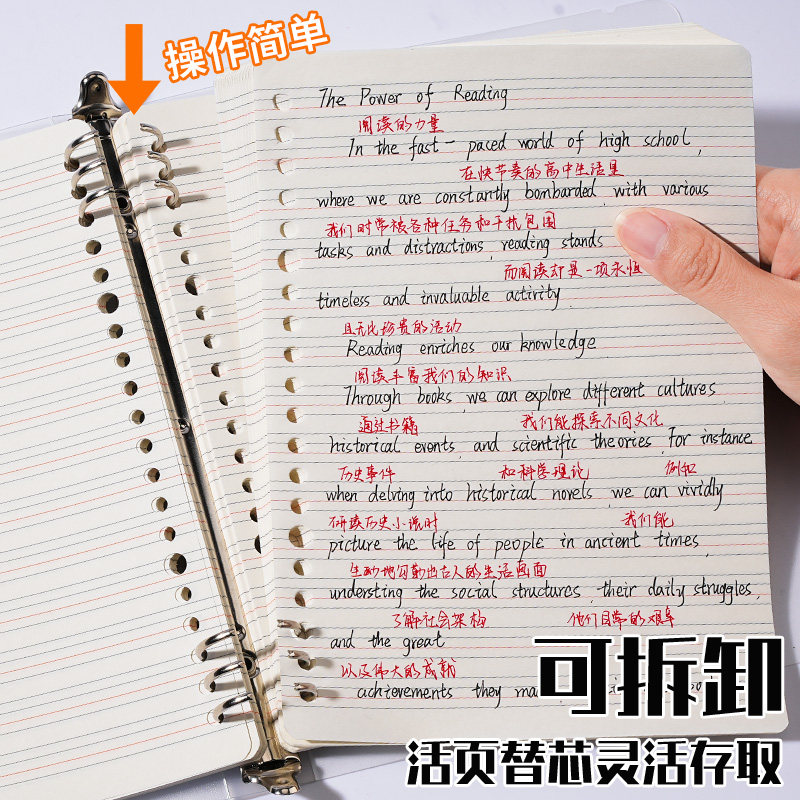 操作简单
The Power of Reading
阅读的力量
In the fast-paced world of high school,
在快节奏的高中生活里
where we are constantly bombarded with various
我们时常被各种任务和干扰包围
tasks and distractions, reading stands
而阅读却是一项永恒
timeless and invaluable activity.
且无比珍贵的活动
Reading enriches our knowledge
阅读丰富我们的知识
Through books, we can explore different cultures
通过书籍 我们能探索不同文化
historical events, and scientific theories. For instance
历史事件 和科学理论 例如
when delving into historical novels, we can vividly
研读历史小说时 我们能
picture the life of people in ancient times,
生动地勾勒出古人的生活画面
understing the social structures, their daily struggles,
了解社会架构 他们日常的艰辛
and the great
以及伟大的成就
achievements they
可拆卸
活页替芯灵活存取